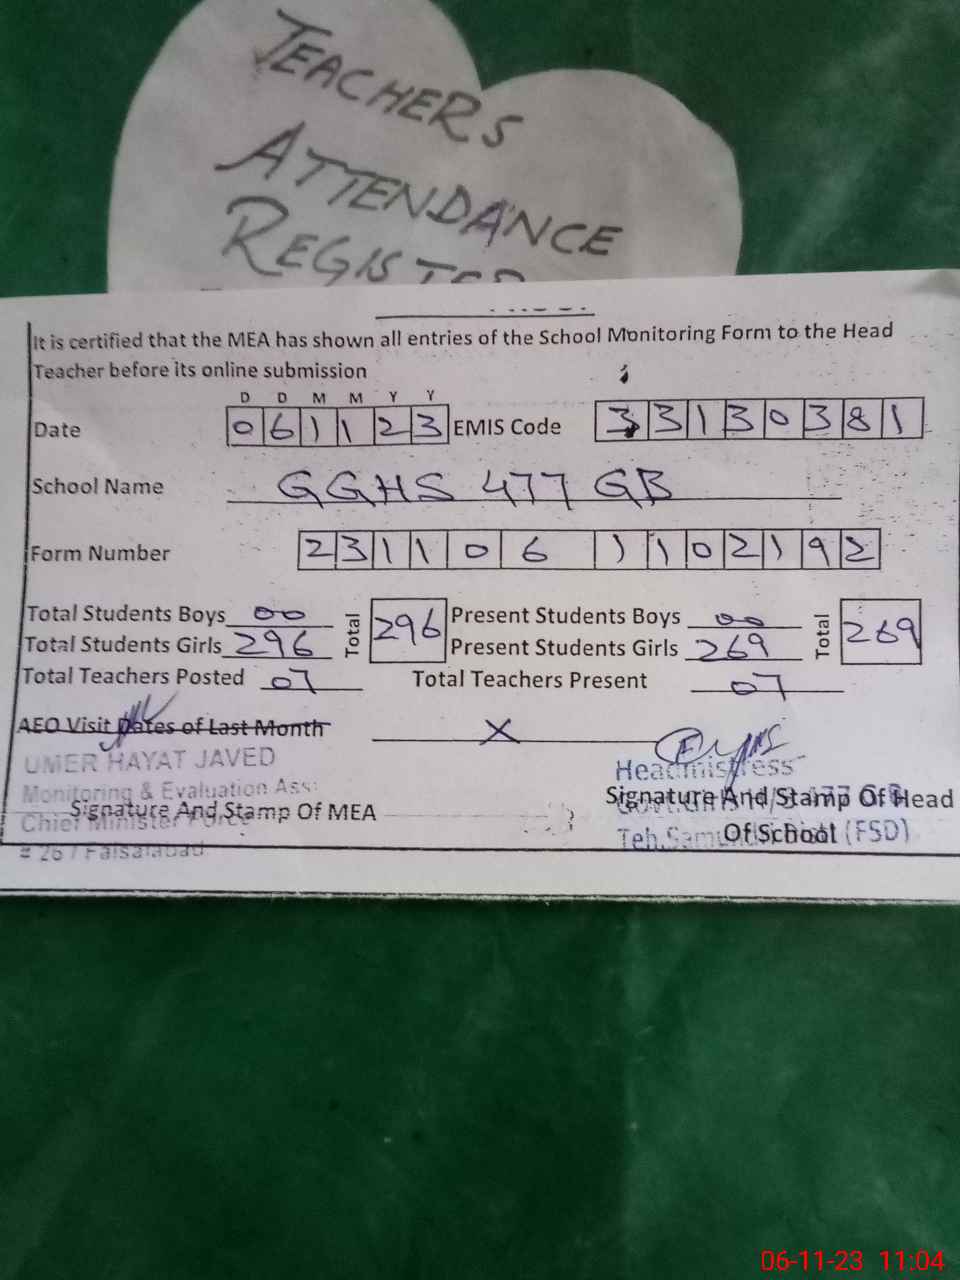 TEACHERS
ATTENDANCE
REGISTER
It is certified that the MEA has shown all entries of the School Monitoring Form to the Head
Teacher before its online submission
D D M M Y Y
Date 0 6 1 1 2 3 EMIS Code 3 3 1 3 0 3 8 1
School Name GGHS 477 GB
Form Number 2 3 1 1 0 6 1 1 0 2 1 9 2
Total Students Boys 00 Total 296 Present Students Boys 00 Total 269
Total Students Girls 296 Present Students Girls 269
Total Teachers Posted 07 Total Teachers Present 07
AEO Visit Dates of Last Month X
UMER HAYAT JAVED
Headmistress
Monitoring & Evaluation Ass:
Signature And Stamp Of MEA
Signature And Stamp Of Head
Chief Minister Force
Of School
Teh. (FSD)
# 267 Faisalabad
06-11-23 11:04